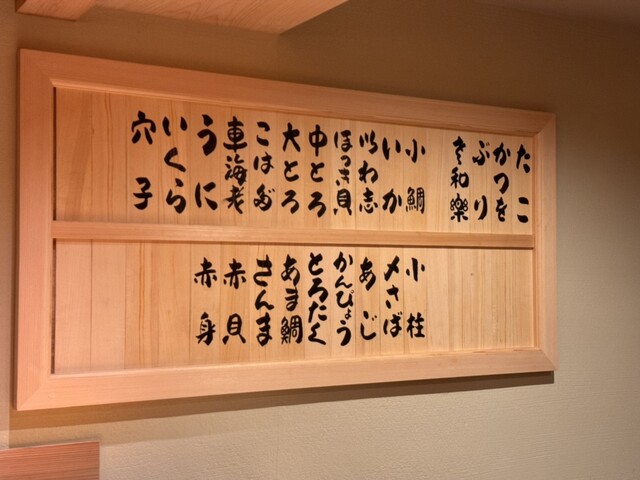 たこ
かつを
ぶり
さ和樂
小鯛
いか
以わ志
ほっき貝
中とろ
大とろ
こはだ
車海老
うに
いくら
穴子
小柱
〆さば
あじ
かんぴょう
とろたく
あま鯛
さんま
赤貝
赤身